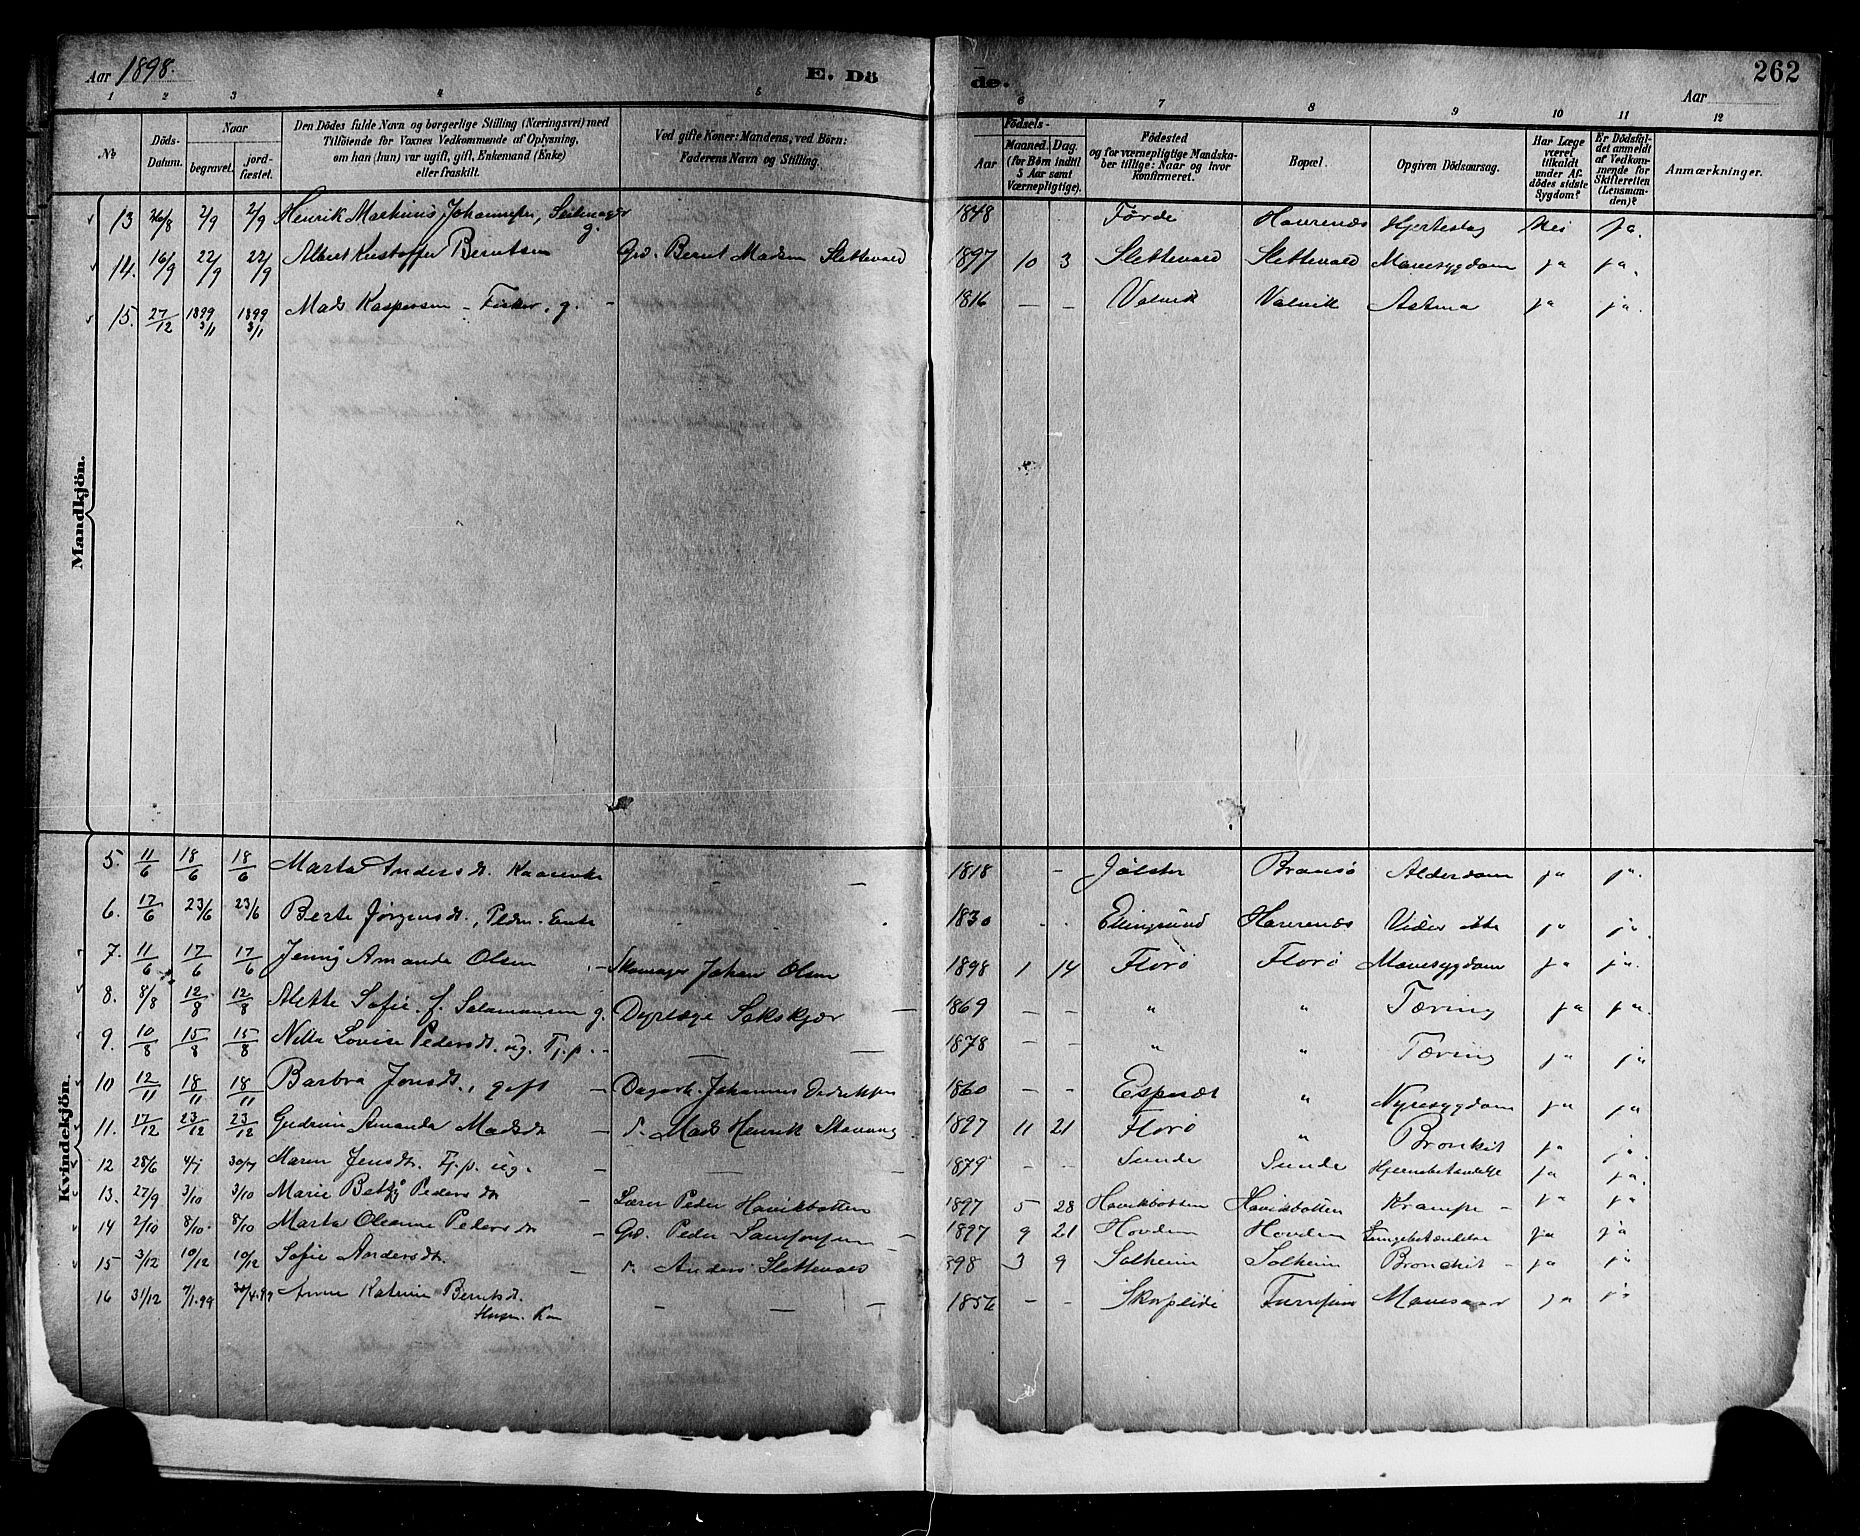 Aar 1898. E. Döde. Aar 262
1 2 3 4 5 6 7 8 9 10 11 12
No
Döds-Datum.
Naar
begravet.
jordfæstet.
Den Dödes fulde Navn og borgerlige Stilling (Næringsvei) med
Tilföiende for Voxnes Vedkommende af Oplysning,
om han (hun) var ugift, gift, Enkemand (Enke)
eller fraskilt.
Ved gifte Koner: Mandens, ved Börn:
Faderens Navn og Stilling.
Födsels-
Aar
Maaned. Dag.
(for Börn indtil
5 Aar samt
Værnepligtige).
Födested
og for værnepligtige Mandskaber tillige: Naar og hvor
konfirmeret.
Bopæl.
Opgiven Dödsaarsag.
Har Læge
været
tilkaldt
under Afdödes sidste
Sygdom?
Er Dödsfaldet anmeldt
af Vedkommende for
Skifteretten
(Lensmanden)?
Anmærkninger.
Mandkjön.
13 26/8 2/9 2/9 Henrik Martinus Johannesen, g. 1848 Førde Havrenæs Hjerteslag Nei ja.
14. 16/9 22/9 22/9 Albert Kristoffer Berntsen Grd. Bernt Madsen Slettevald 1897 10 3 Slettevald Slettevald Mavesygdom ja ja.
15. 27/12 1899 3/1 1899 3/1 Mads Kaspersen – Fisker, g. – 1816 — — Valvik Valvik Astma ja ja.
Kvindekjön.
5. 11/6 18/6 18/6 Marta Andersdt. – – 1818 – Jølster Bransø Alderdom ja ja.
6. 17/6 23/6 23/6 Berte Jørgensdt., Enke 1830 Havrenæs Vides ikke ja ja.
7. 11/6 17/6 17/6 Jenny Amanda Olsen, – Skomager Johan Olsen 1898 1 14 Florø Florø Mavesygdom ja ja.
8. 8/8 12/8 12/8 Alette Sofie f. Salamonsen g. Dyrlæge – 1869 – – " " Tæring ja ja.
9. 10/8 15/8 15/8 Nella Lovise Pedersdt. ug. Tj.p. – — — 1878 – – " " Tæring ja ja
10 12/11 18/11 18/11 Barbra Jonsdt., gift – Dagarb. Johannes 1860 – – Espesæt " Nyresygdom ja ja
11. 17/12 23/12 23/12 Gudrun Amanda Madsdt – Mads Henrik Stavang 1897 11 21 Florø " Bronkit ja ja.
12 28/6 4/7 30/7 Maren Jensdt. Tj.p. ug. – — — 1879 – – Sunde Sunde Hjernebetændelse ja ja.
13. 27/9 3/10 3/10 Marie Betsy Pedersdt – Lærer Peder Havikbotten 1897 5 28 Havikbotten Havikbotten Krampe – ja ja
14 2/10 8/10 8/10 Marta Oleanne Pedersdt – Grd. Peder Samsonsen – 1897 9 21 Hovden Hovden Lungebetændelse ja ja
15 3/12 10/12 10/12 Sofie Andersdt. – Anders Slettevald 898 3 9 Solheim Solheim Bronchit – ja ja
16 31/12 7/1.99 30/4.99 Anne Katrine Berntsdt. — — 1856 – – Skorpeide ja ja
Husm. Kone